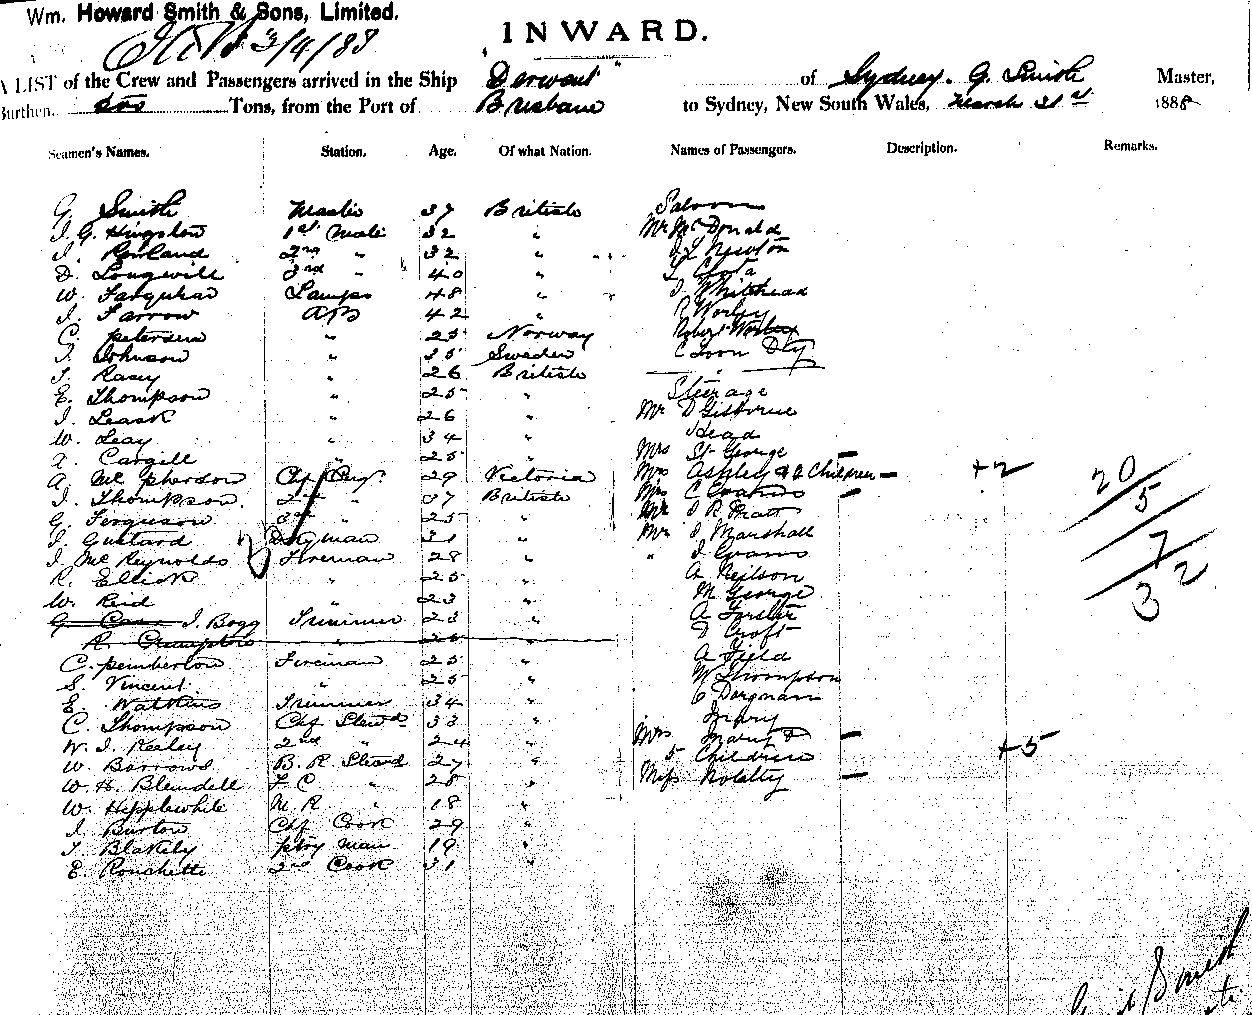 Wm. Howard Smith & Sons, Limited.
3/4/88
INWARD.
A LIST of the Crew and Passengers arrived in the Ship "Derwent" of Sydney. G. Smith Master,
Burthen, Tons, from the Port of Brisbane to Sydney, New South Wales, March 31st 1888
Seamen's Names. Station. Age. Of what Nation. Names of Passengers. Description. Remarks.
G. Smith Master 37 British Saloon
J. G. Kingston 1st Mate 32 " Mr McDonald
J. Rowland 2nd " 32 " Newton
D. Longwill 3rd " 40 "
W. Farquhar Lamps 48 " J Whitehead
J. Farrow AB 42 " R Worley
C. petersen " 25 Norway Robert Worley
J. Johnson " 35 Sweden C Toon Dly
J. Rasey " 26 British "
E. Thompson " 25 " Steerage
J. Leask " 26 " Mr D Gisborne
W. Leay " 34 " Head
A. Cargill " 25 " Mrs St George
A. McPherson Chf Eng. 29 Victoria Mrs Ashley & 2 Children +2
J. Thompson 2nd " 37 British Mrs C Evans
G. Ferguson 3rd " 25 " Mr J R Pratt
J. Gustard Dkyman 31 " Mr J Marshall
J. McReynolds Fireman 28 " " J Evans
R. Ellick " 25 " A Neilson
W. Reid " 23 " M George
G. Case J. Bogg Trimmer 23 " A Forster
R. Crumpton " 25 " Croft
C. pemberton Fireman 25 " A Field
S. Vincent " 25 " W Thompson
E. Watkins Trimmer 34 " C Dargnam
C. Thompson Chf Stewd 33 " Mary
W. J. Keeley 2nd " 24 " Mrs Marsh & +5
W. Barrows B. R. Steard 27 " 5 Children
W. H. Blendell F C " 28 " Miss Nolatty
W. Hepplewhite M. R. " 18 "
J. Burton Chf Cook 29 "
J. Blakely ptry man 19 "
E. Ronchette 2nd Cook 31 "
20
5
7
32
Smith